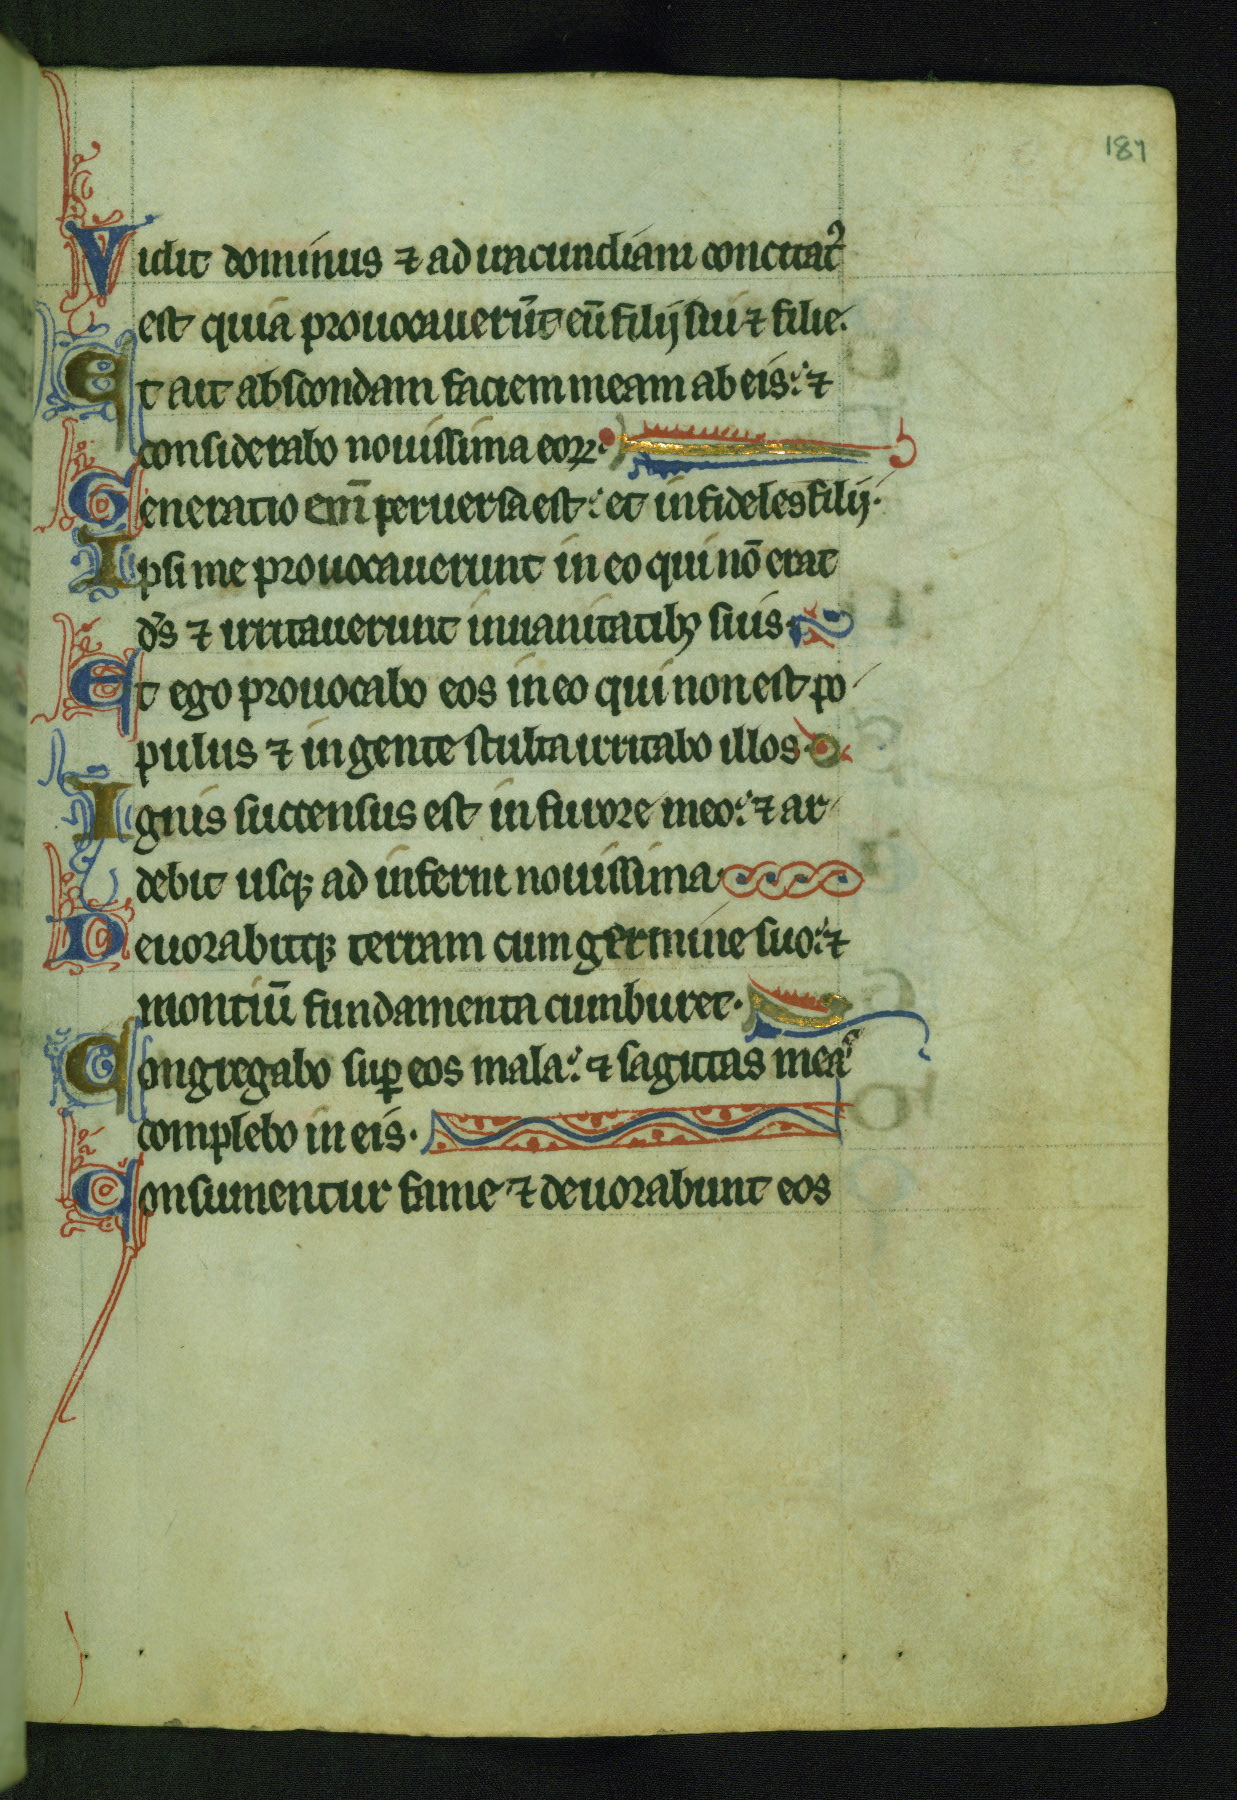 187
Vidit dominus ⁊ ad iracundiam concitatꝰ
est quia prouocauerūt eū filij sui ⁊ filie.
Et ait abscondam faciem meam ab eis: ⁊
considerabo nouissima eoꝝ.
Generatio enī peruersa est: et infideles filij.
Ipsi me prouocauerunt in eo qui nō erat
d̄s ⁊ irritauerunt in uanitatibꝫ suis.
Et ego prouocabo eos in eo qui non est po
pulus ⁊ in gente stulta irritabo illos.
Ignis succensus est in furore meo: ⁊ ar
debit usqꝫ ad inferni nouissima.
Deuorabitqꝫ terram cum germine suo: ⁊
montiū fundamenta cumburet.
Congregabo suꝑ eos mala: ⁊ sagittas meas
complebo in eis.
Consumentur fame ⁊ deuorabunt eos